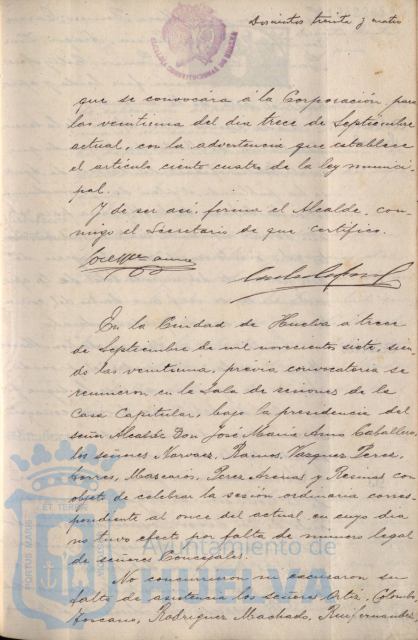 Doscientos treinta y cuatro
ALCALDIA CONSTITUCIONAL DE HUELVA
que se convocára á la Corporación para
las veintiuna del dia trece de Septiembre
actual, con la advertencia que establece
el artículo ciento cuatro de la ley munici-
pal.
Y de ser así, firma el Alcalde con-
migo el Secretario de que certifico.
En la Ciudad de Huelva á trece
de Septiembre de mil novecientos siete, sien-
do las veintiuna, previa convocatoria se
reunieron en la Sala de sesiones de la
Casa Capitular, bajo la presidencia del
señor Alcalde Don José María Amo Caballero,
los señores Narvaez, Ramos, Vazquez Perez,
Mascarós, Perez Arenas y Resinas con
objeto de celebrar la sesión ordinaria corres-
pondiente al once del actual, en cuyo dia
no tuvo efecto por falta de número legal
de señores Concejales.
No concurrieron ni excusaron su
falta de asistencia los señores Ortiz, Colombo,
Toscano, Rodriguez Machado, Ruifernandez
Ayuntamiento de
HUELVA
PORTUS MARIS
ET TERRE
CUSTODIA